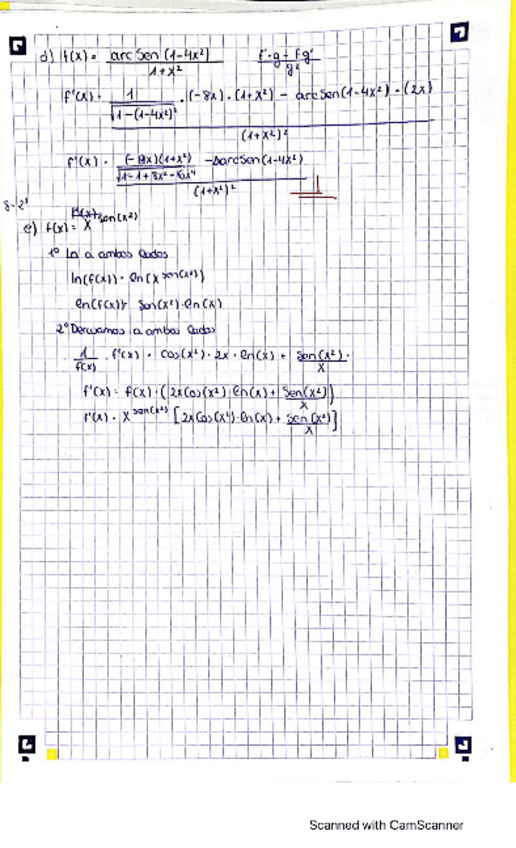 d) f(x) = arc sen (1-4x²) / 1+x²   f'·g - f·g' / g²
f'(x) = 1 / √1-(1-4x²)² · (-8x) · (1+x²) - arc sen(1-4x²) · (2x) / (1+x²)²
f'(x) = (-8x)(1+x²) / √1-1+8x²-16x⁴ / (1+x²)²
e) f(x) = x^sen(x²)
1º Ln a ambos lados
ln(f(x)) = ln(x^sen(x²))
ln(f(x)) = sen(x²)·ln(x)
2º Derivamos a ambos lados
1/f(x) · f'(x) = cos(x²)·2x·ln(x) + sen(x²)/x ·
f'(x) = f(x)·(2x cos(x²)·ln(x) + sen(x²)/x)
f'(x) = x^sen(x²) [2x cos(x²)·ln(x) + sen(x²)/x]
Scanned with CamScanner